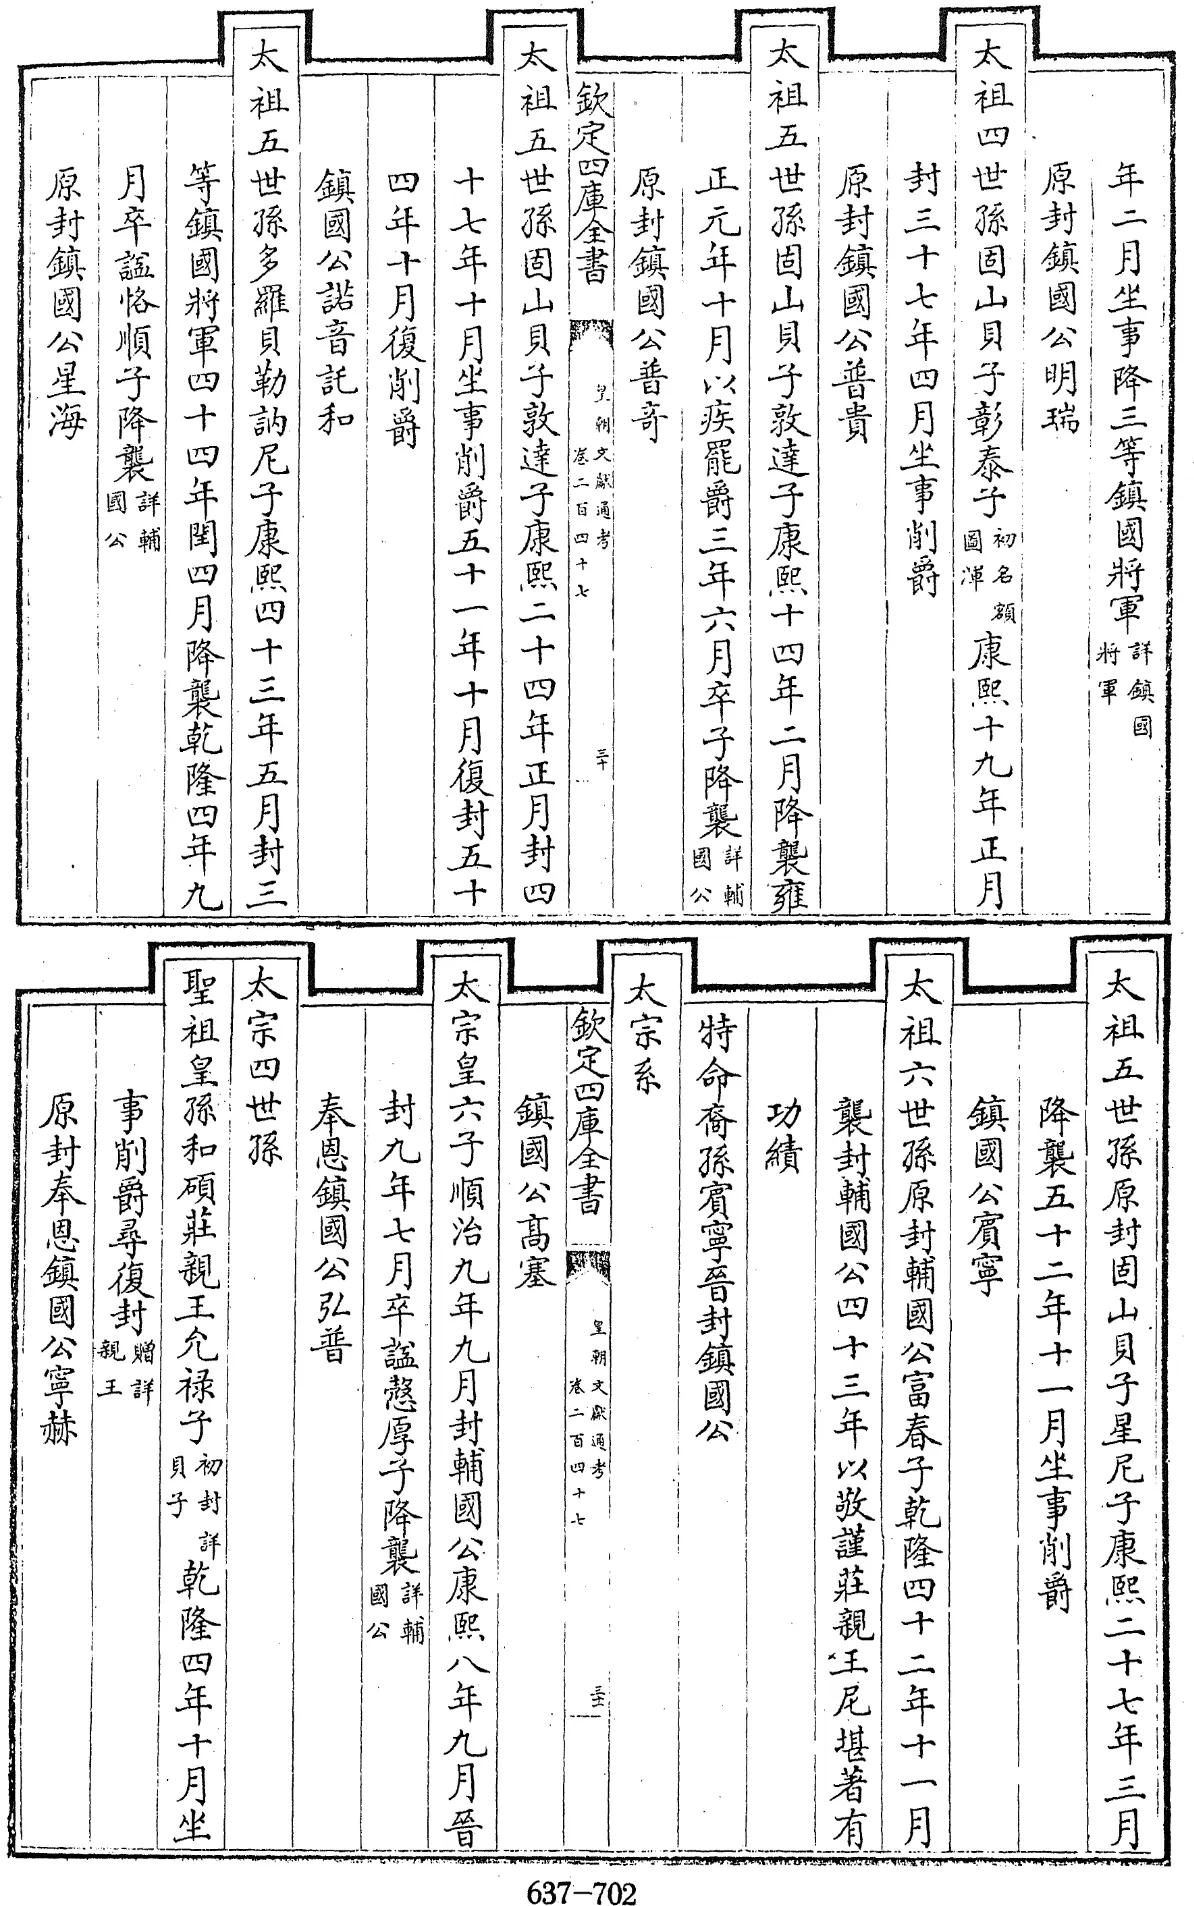 年二月坐事降三等鎮國將軍詳鎮國將軍
原封鎮國公明瑞
太祖四世孫固山貝子彰泰子初名額圖渾康熙十九年正月
封三十七年四月坐事削爵
原封鎮國公普貴
太祖五世孫固山貝子敦達子康熙十四年二月降襲雍
正元年十月以疾罷爵三年六月卒子降襲詳輔國公
原封鎮國公普奇
欽定四庫全書
皇朝文獻通考
卷二百四十七
三十
太祖五世孫固山貝子敦達子康熙二十四年正月封四
十七年十月坐事削爵五十一年十月復封五十
四年十月復削爵
鎮國公諾音託和
太祖五世孫多羅貝勒訥尼子康熙四十三年五月封三
等鎮國將軍四十四年閏四月降襲乾隆四年九
月卒諡恪順子降襲詳輔國公
原封鎮國公星海
太祖五世孫原封固山貝子星尼子康熙二十七年三月
降襲五十二年十一月坐事削爵
鎮國公賓寧
太祖六世孫原封輔國公富春子乾隆四十二年十一月
襲封輔國公四十三年以敬謹莊親王尼堪著有
功績
特命裔孫賓寧晉封鎮國公
太宗系
欽定四庫全書
皇朝文獻通考
卷二百四十七
三十一
鎮國公高塞
太宗皇六子順治九年九月封輔國公康熙八年九月晉
封九年七月卒諡慤厚子降襲詳輔國公
奉恩鎮國公弘普
太宗四世孫
聖祖皇孫和碩莊親王允祿子初封詳貝子乾隆四年十月坐
事削爵尋復封贈詳親王
原封奉恩鎮國公寧赫
637-702